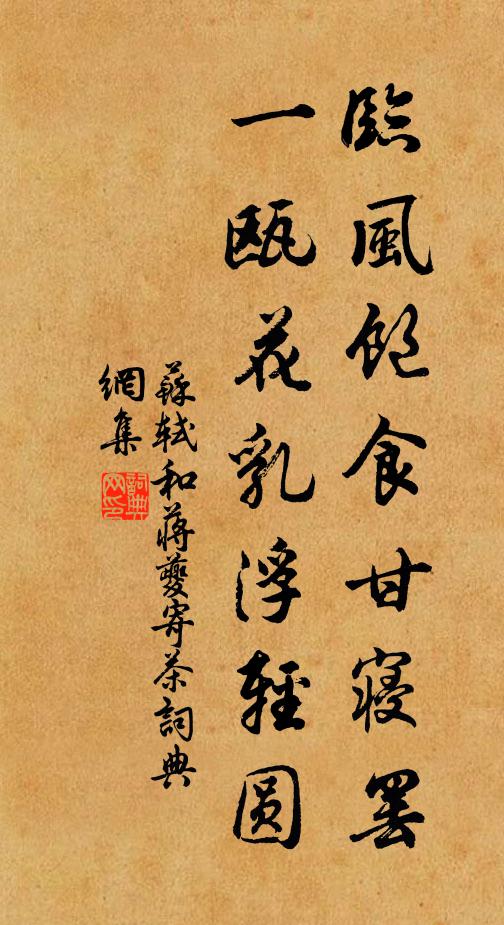 臨風飽食甘寢罷
一甌花乳浮輕圓
蘇軾和蔣夔寄茶詞典
網集
詞典
网印